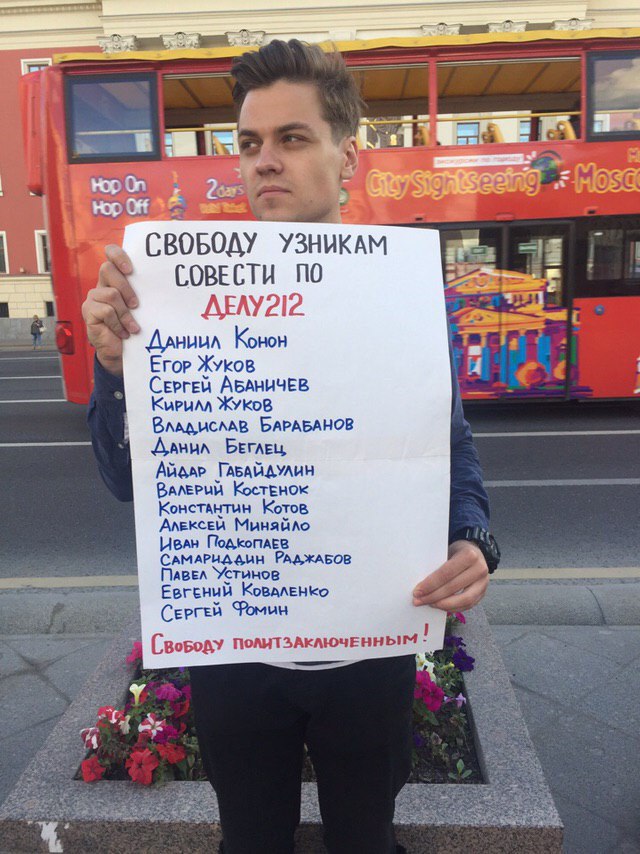 Hop On
Hop Off
2 days
экскурсии по городу
City Sightseeing
Mosco
СВОБОДУ УЗНИКАМ
СОВЕСТИ ПО
ДЕЛУ212
Даниил Конон
Егор Жуков
Сергей Абаничев
Кирилл Жуков
Владислав Барабанов
Данил Беглец
Айдар Габайдулин
Валерий Костенок
Константин Котов
Алексей Миняйло
Иван Подкопаев
Самариддин Раджабов
Павел Устинов
Евгений Коваленко
Сергей Фомин
Свободу политзаключенным!